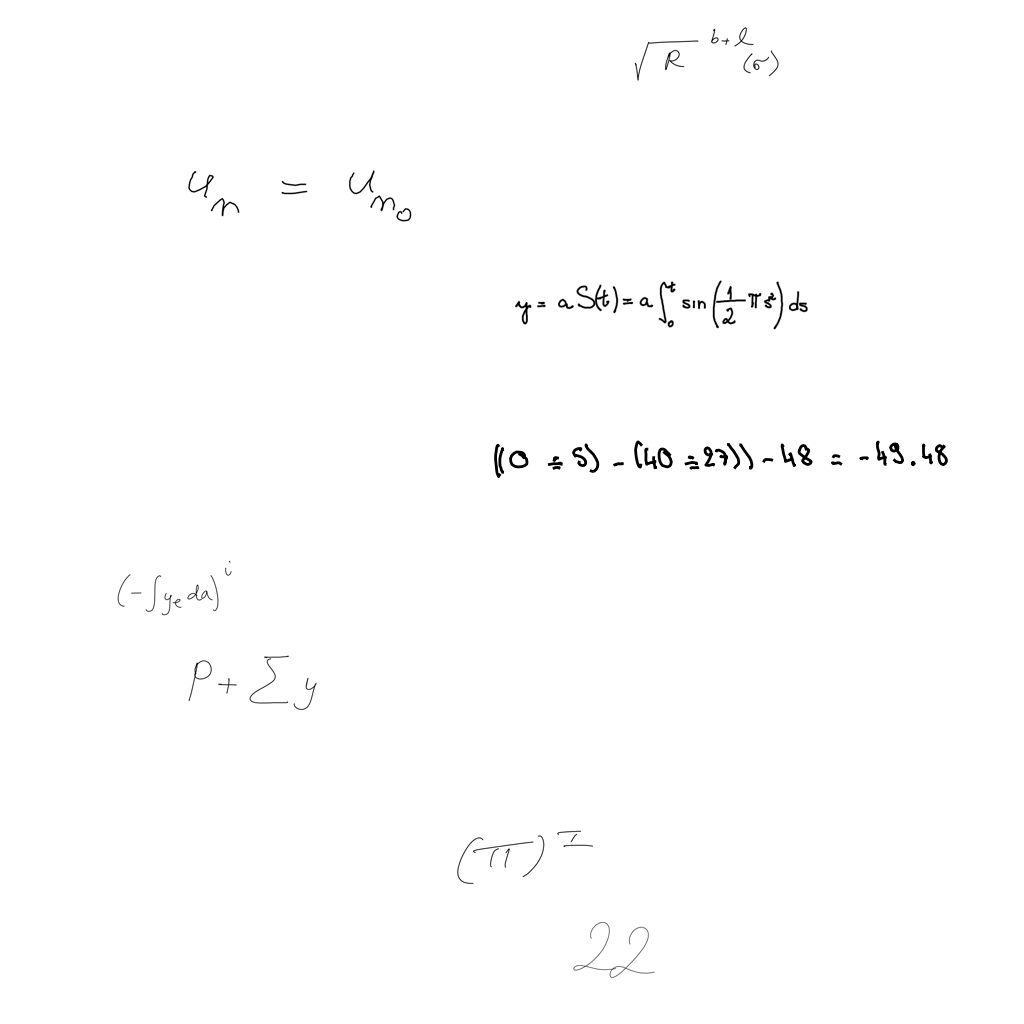 √R^{b+l}(σ)
u_n = u_{n_0}
y = a S(t) = a ∫_0^t sin(\frac{1}{2} π s²) ds
((0 ÷ 5) - (40 ÷ 27)) - 48 = -49.48
(-∫y_e da)^i
P + ∑ y
(π)^I
22